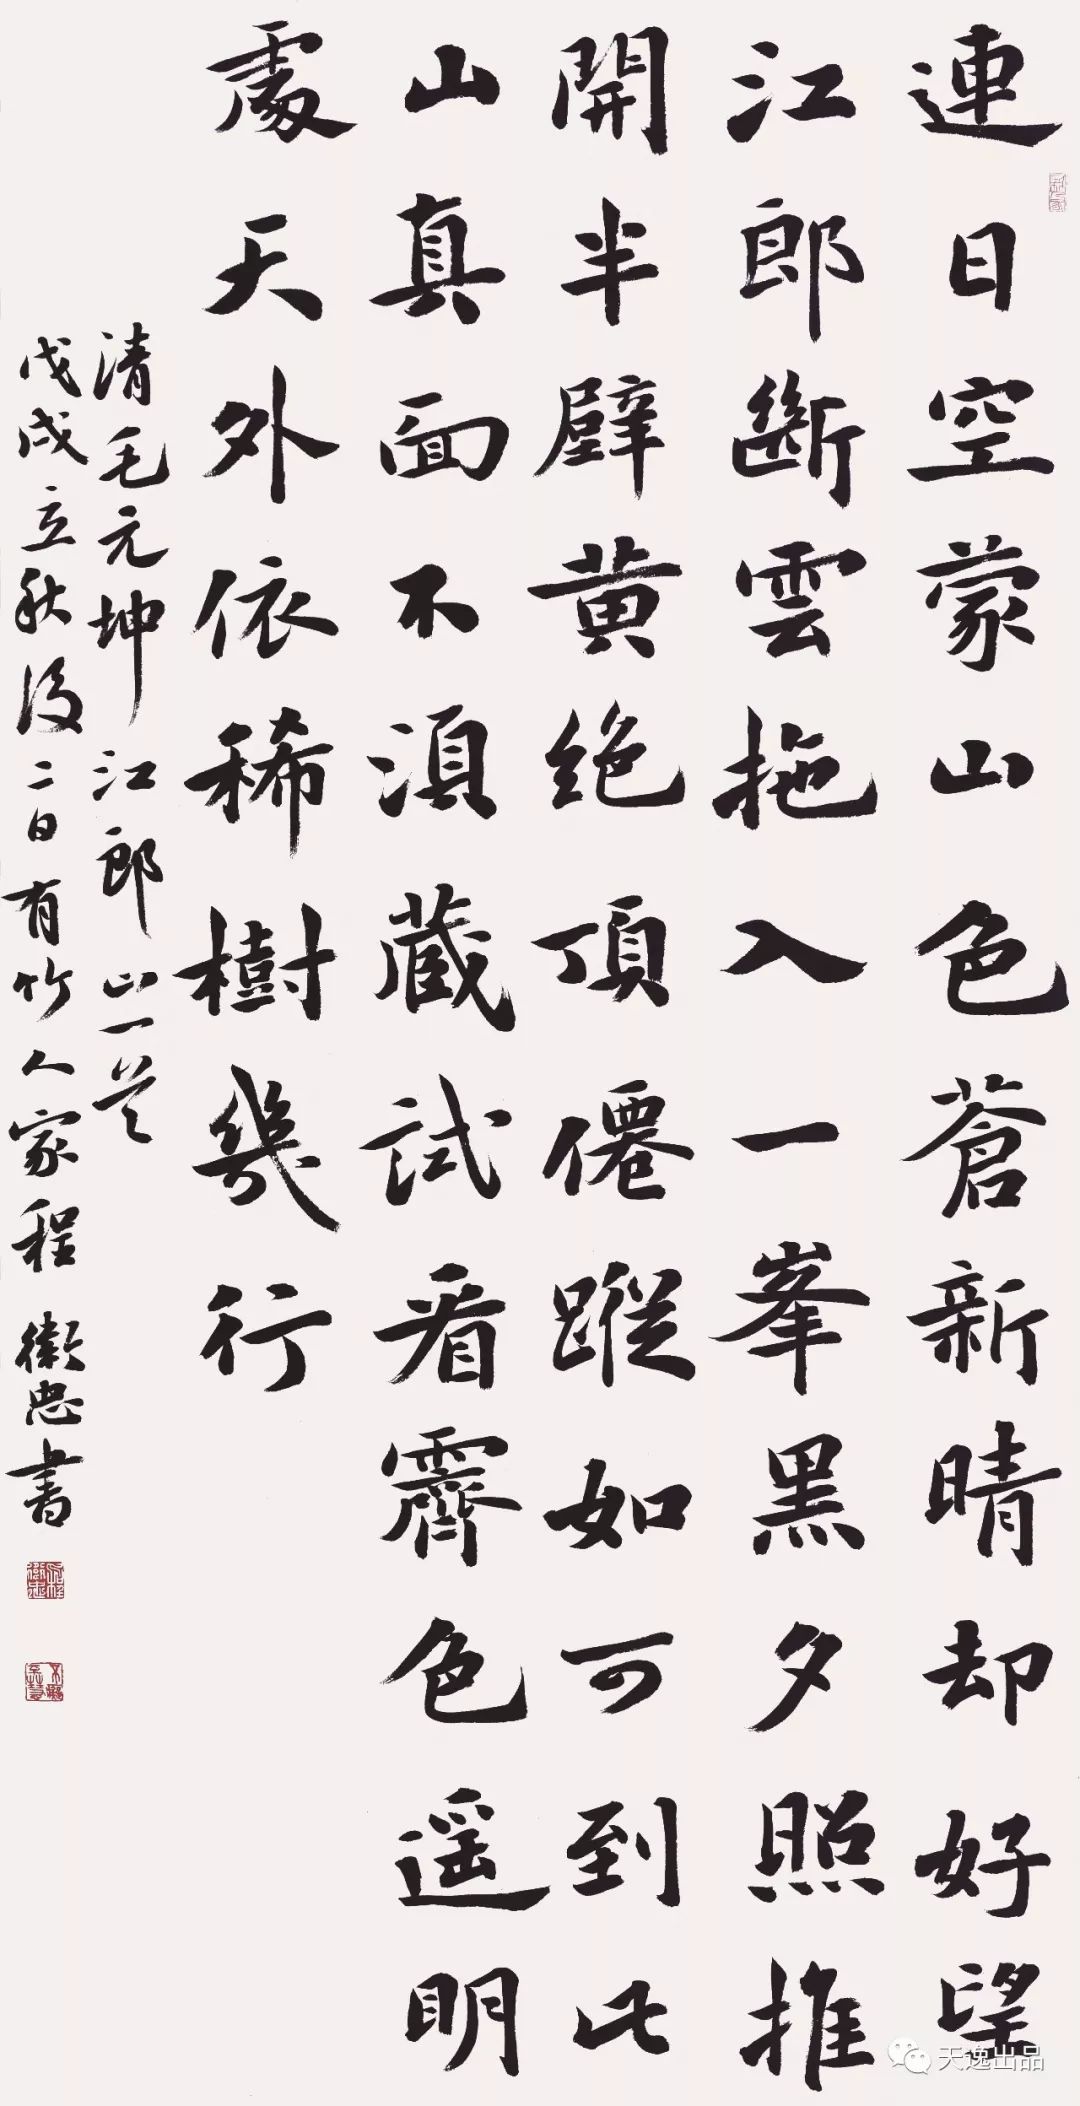 連日空蒙山色蒼新晴却好望
江郎斷雲拖入一峯黑夕照推
開半壁黄绝頂僊蹤如可到此
山真面不湏蔵試看霽色遥明
處天外依稀樹幾行
清毛元坤江郎山一首
戊戌立秋後二日有竹人家程衛忠書
天逸出品